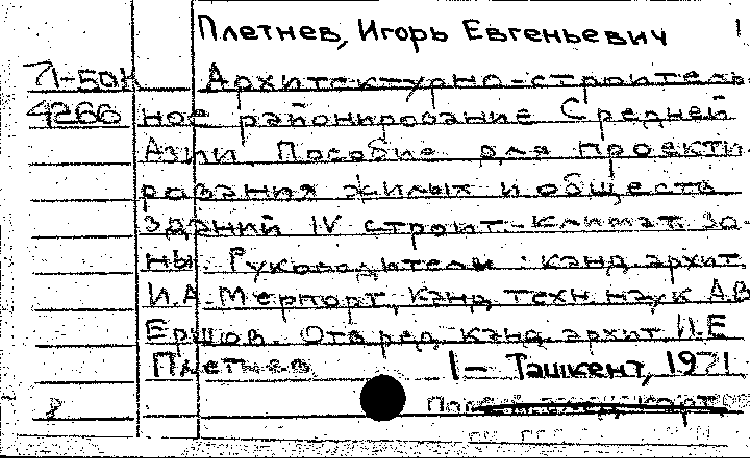 Плетнев, Игорь Евгеньевич 1
Л-50к Архитектурно-строитель
4266 ное районирование Средней
Азии. Пособие для проекти
рования жилых и обществ
зданий IV строит.-климат. зо-
ны. Руководители: канд. архит.
И.А. Мерпорт, канд. техн. наук А.В
Ершов. Отв ред. канд. архит. И.Е
Плетнев 1 - Ташкент, 1971